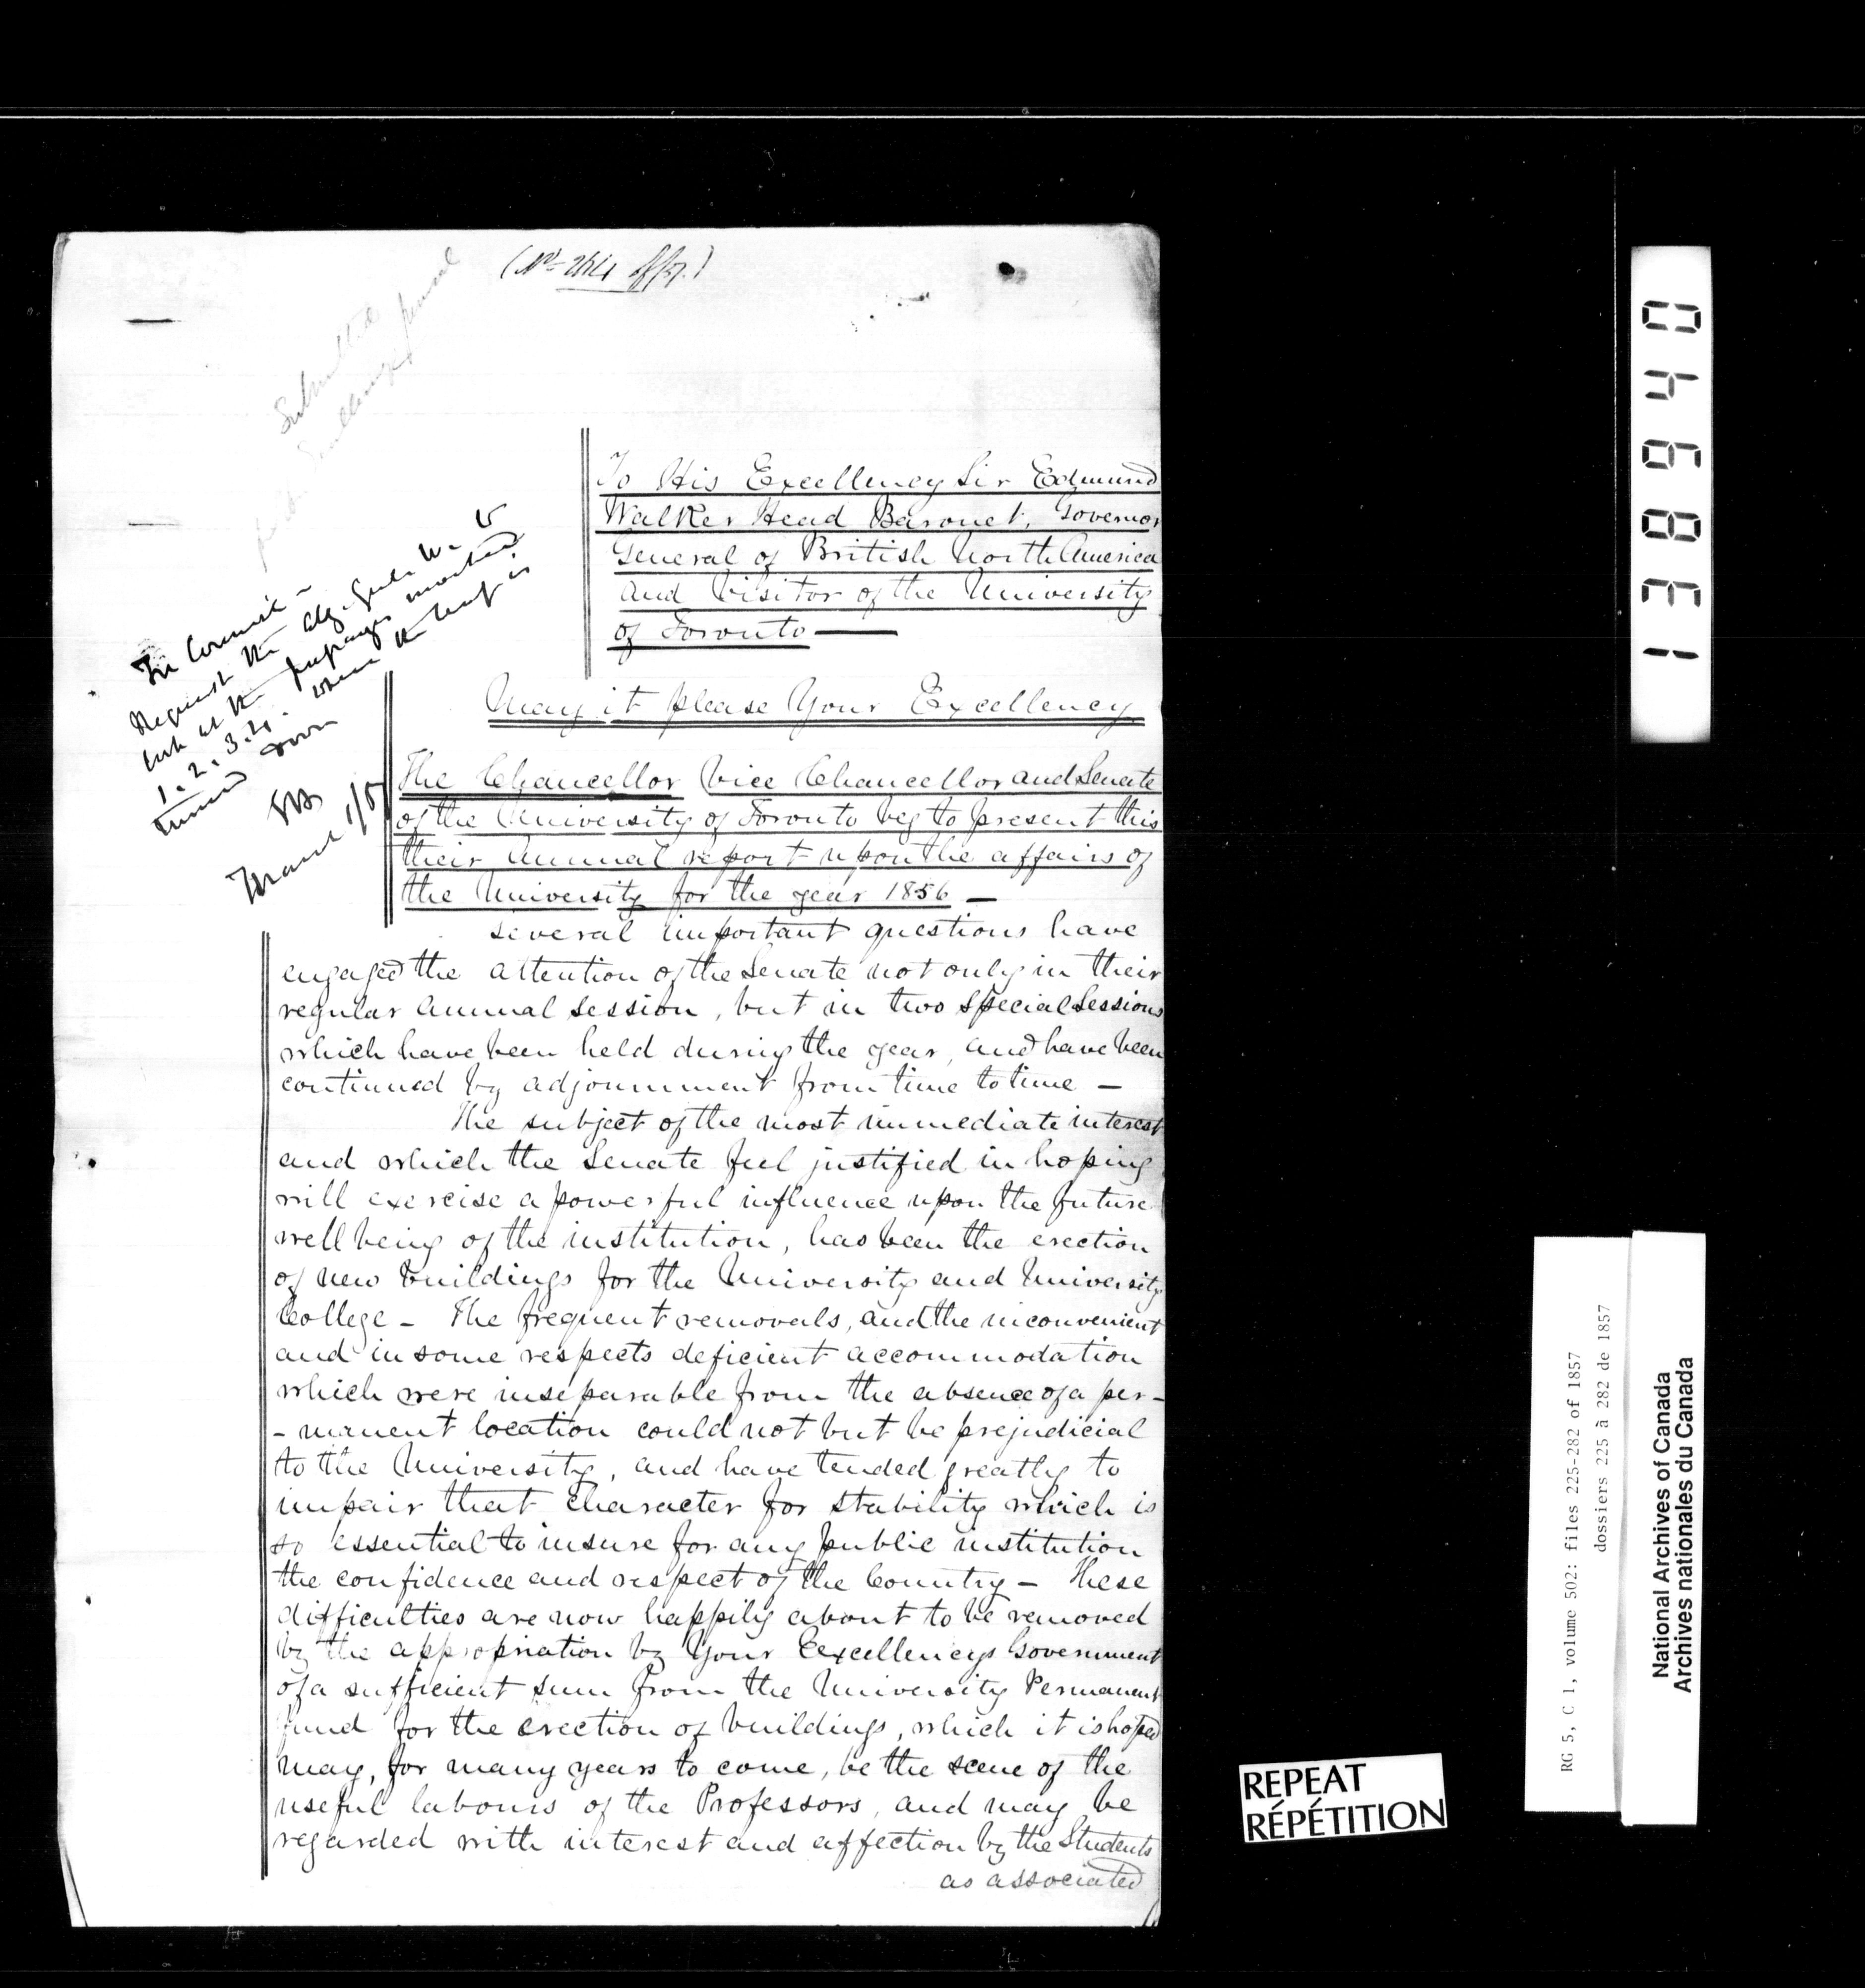 (No 264 of/57.)
Submitted
Excellency's perusal
In Council -
Request the Atty. Genl. U.
look at the passages marked
1. 2. 3. 4. when the draft is
turned down
March 1/57
To His Excellency Sir Edmund
Walker Head Baronet, Governor
General of British North America
and Visitor of the University
of Toronto —
May it please Your Excellency
The Chancellor Vice Chancellor and Senate
of the University of Toronto beg to present this
their Annual report upon the affairs of
the University for the year 1856 —
Several important questions have
engaged the attention of the Senate not only in their
regular annual Session, but in two Special Sessions
which have been held during the year, and have been
continued by adjournment from time to time —
The subject of the most immediate interest
and which the Senate feel justified in hoping
will exercise a powerful influence upon the future
well being of the institution, has been the erection
of new buildings for the University and University
College - The frequent removals, and the inconvenient
and in some respects deficient accommodation
which were inseparable from the absence of a per-
- manent location could not but be prejudicial
to the University, and have tended greatly to
impair that character for stability which is
so essential to insure for any public institution
the confidence and respect of the Country - These
difficulties are now happily about to be removed
by the appropriation by Your Excellencys Government
of a sufficient sum from the University Permanent
fund for the erection of buildings, which it is hoped
may, for many years to come, be the scene of the
useful labours of the Professors, and may be
regarded with interest and affection by the Students
as associated
138940
RG 5, C 1, volume 502: files 225-282 of 1857
dossiers 225 à 282 de 1857
National Archives of Canada
Archives nationales du Canada
REPEAT
RÉPÉTITION